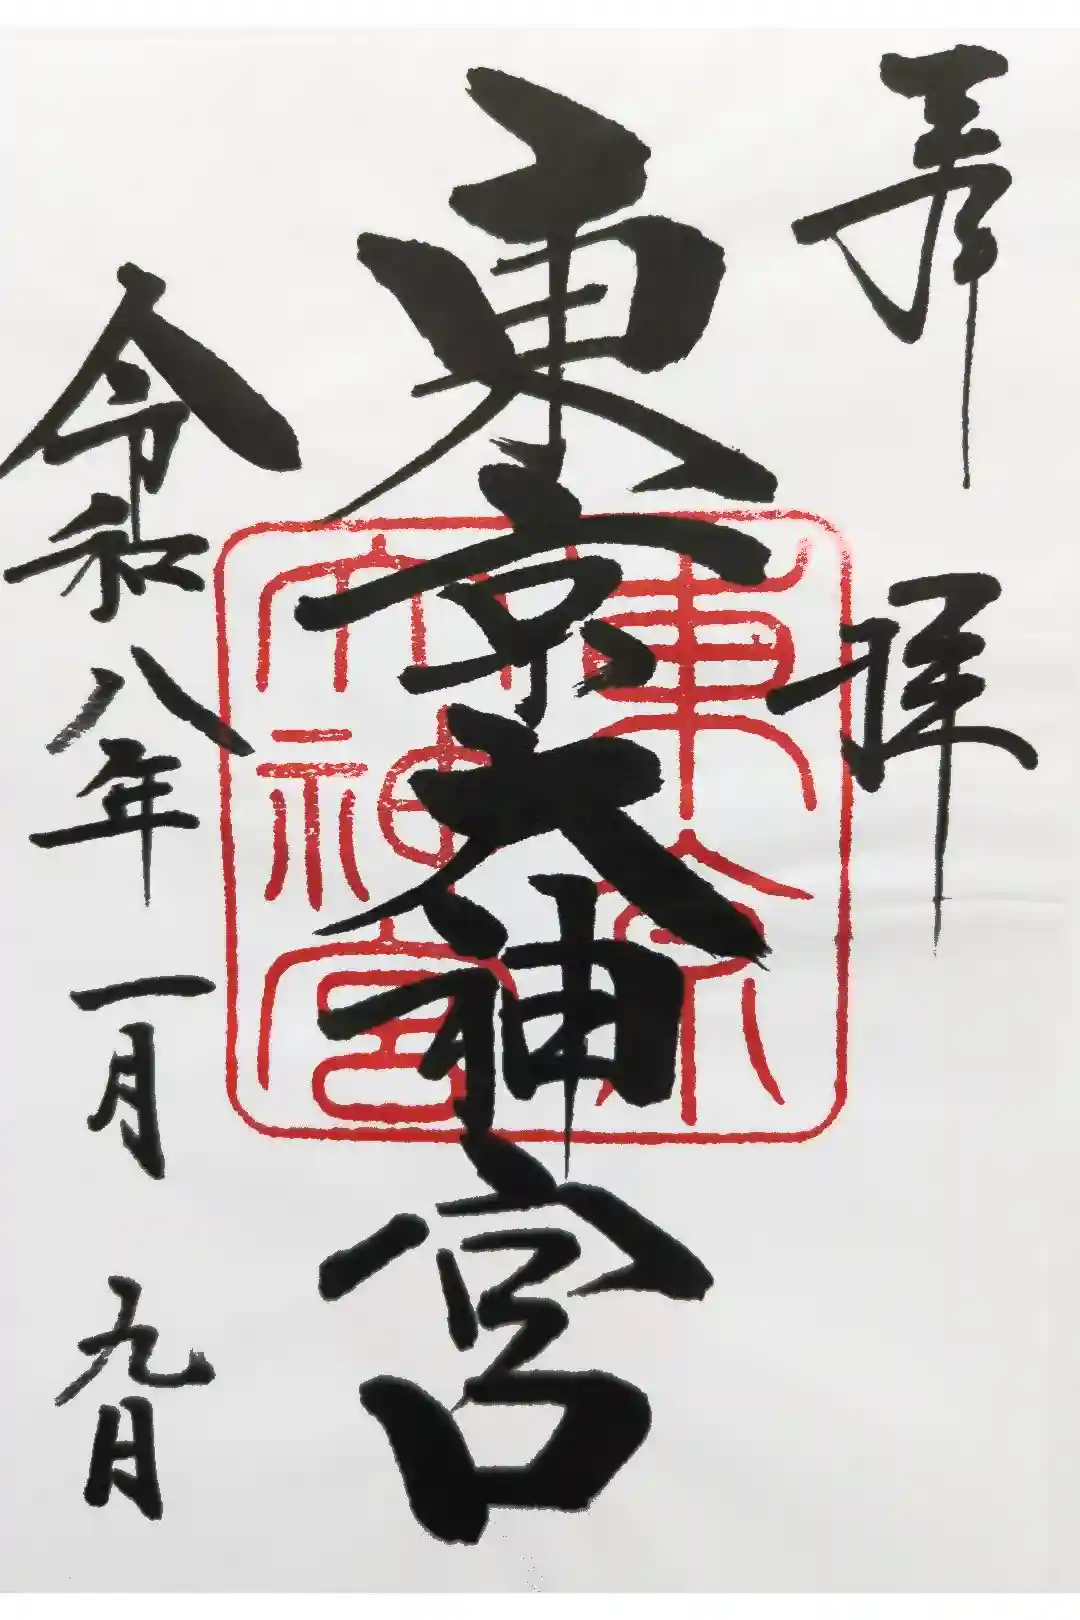 奉拝
東京大神宮
令和八年一月九日
東京
大神宮